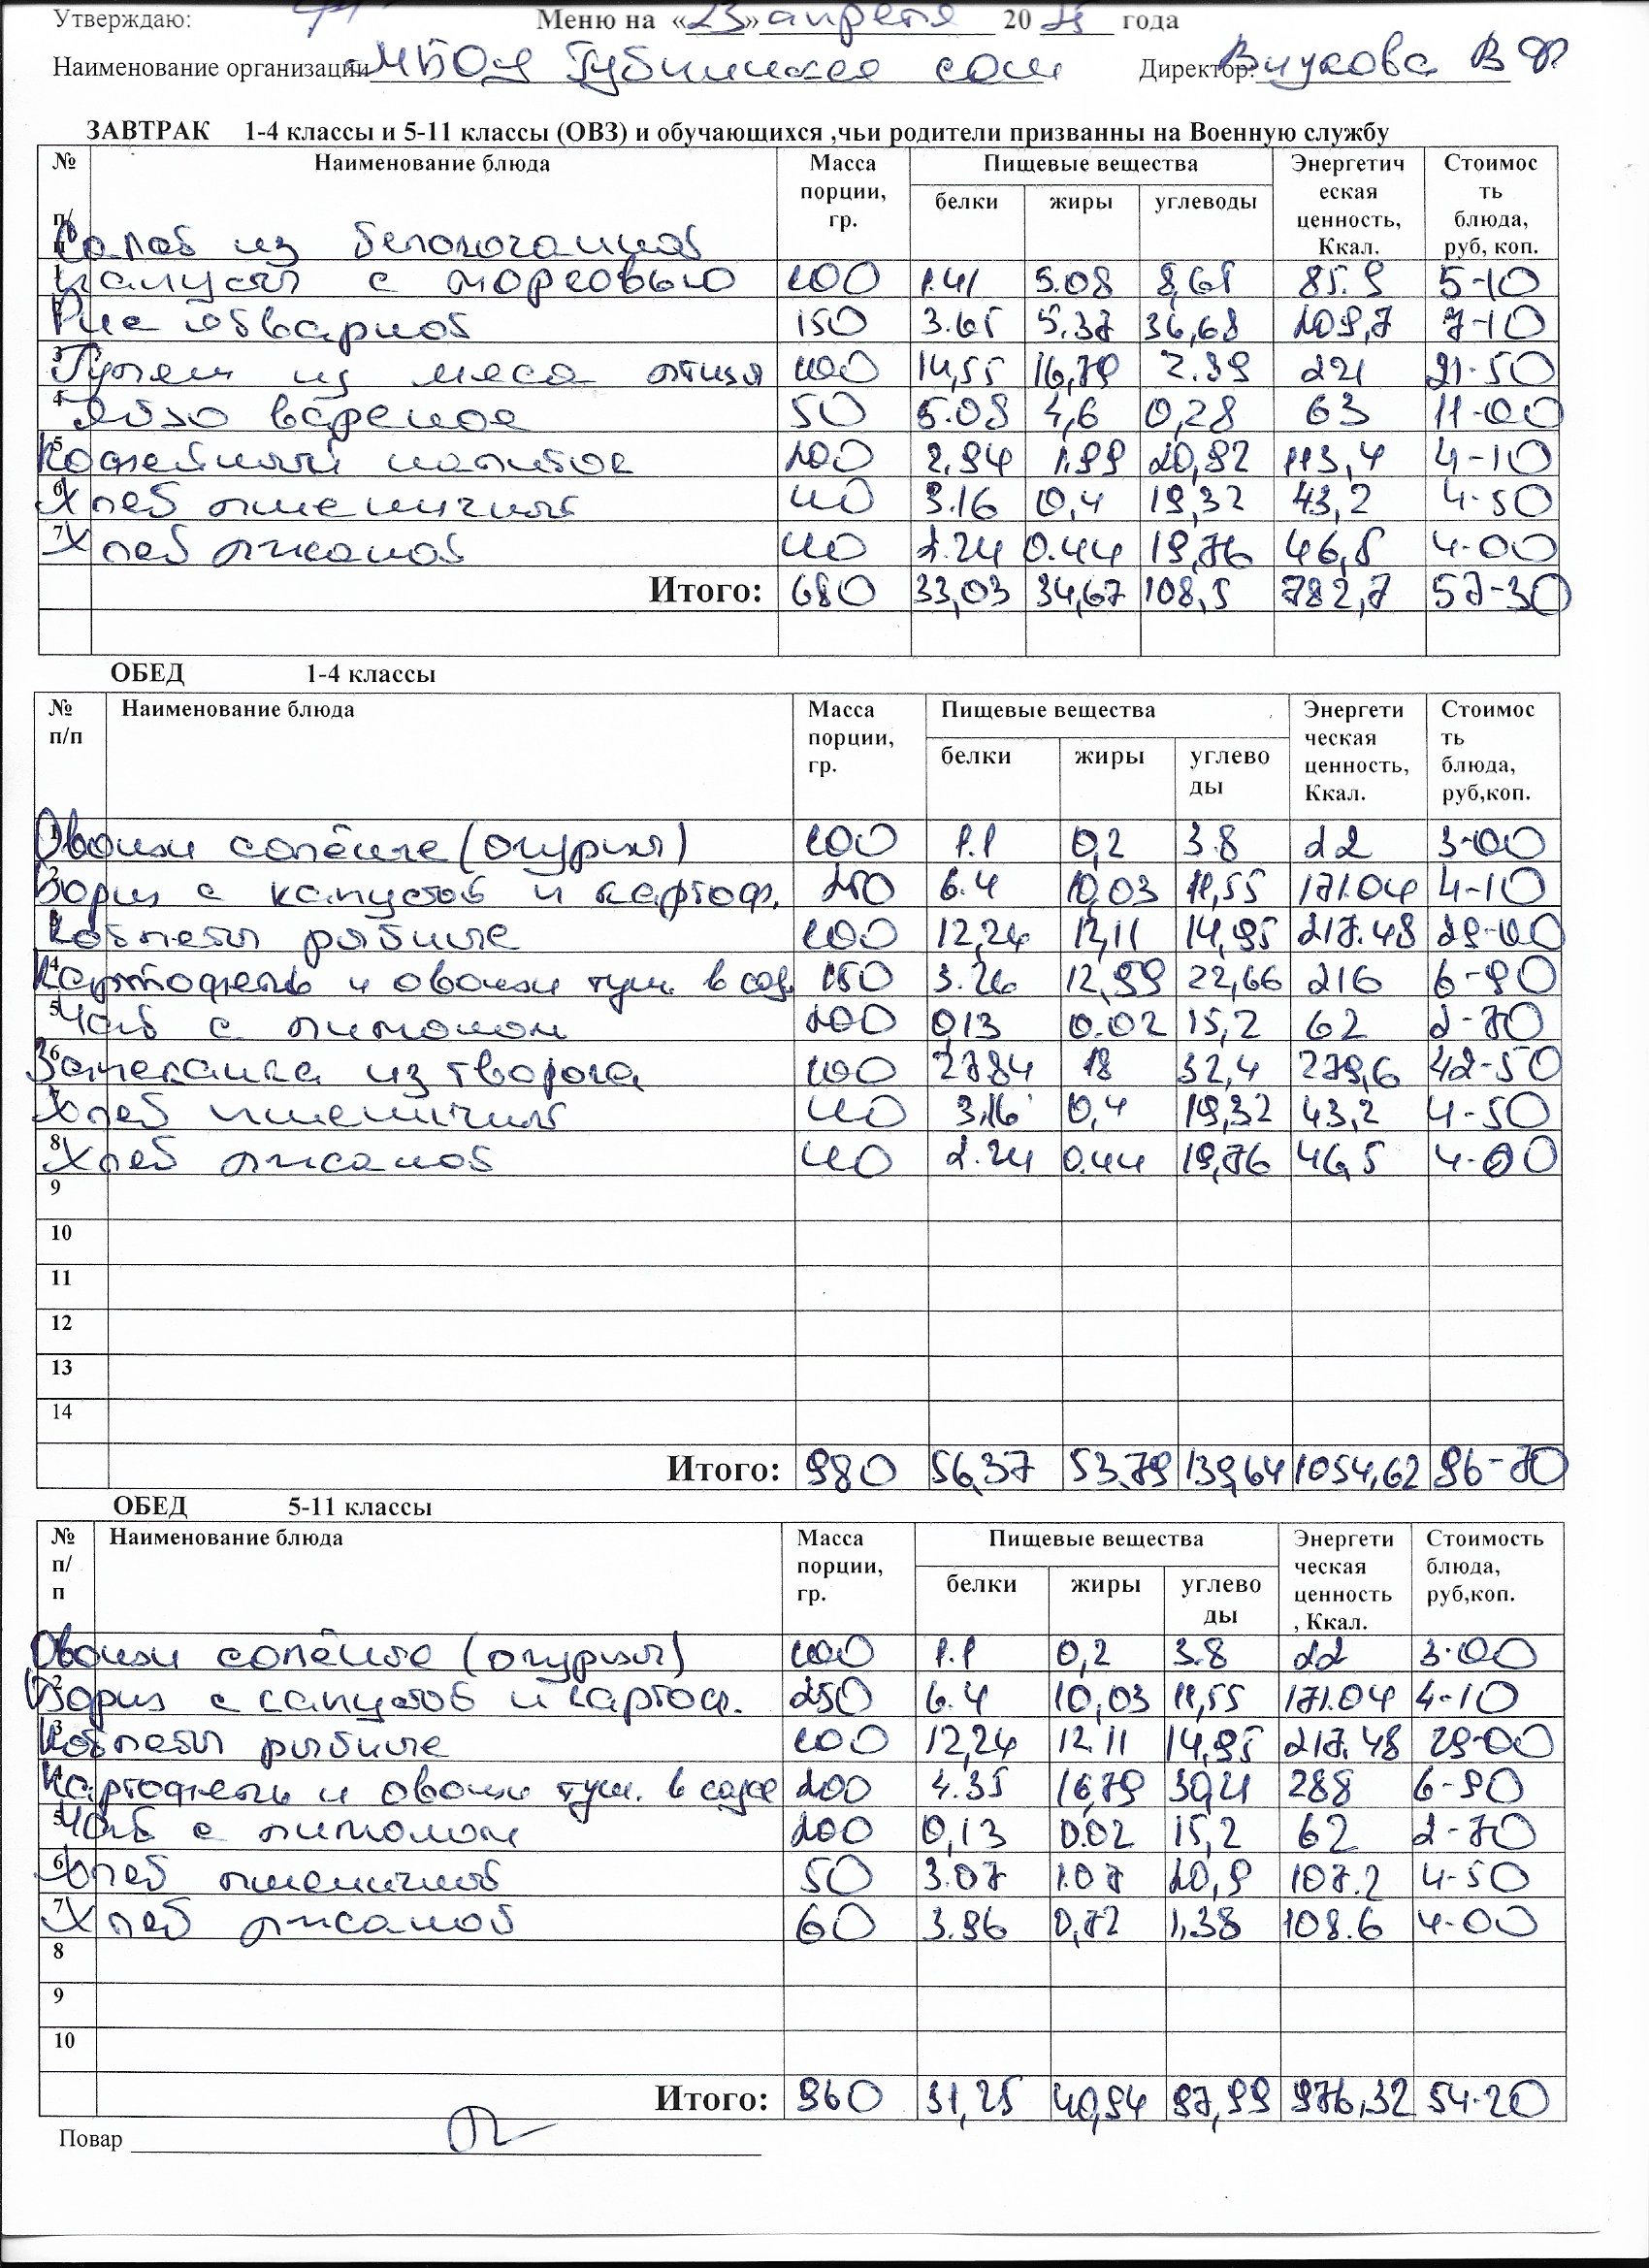 Утверждаю: Меню на «23» апреля 20 25 года
Наименование организации МБОУ Губинская сош Директор: Внукова В Ф
ЗАВТРАК 1-4 классы и 5-11 классы (ОВЗ) и обучающихся ,чьи родители призванны на Военную службу
№ п/п Наименование блюда Масса порции, гр. Пищевые вещества Энергетическая ценность, Ккал. Стоимость блюда, руб, коп.
белки жиры углеводы
Салат из белокочанной
1 капусты с морковью 100 1.41 5.08 8,65 85.9 5-10
2 Рис отварной 150 3.65 5.37 36,68 209,7 7-10
3 Гуляш из мяса птицы 100 14,55 16,79 2.89 221 21-50
4 Яйцо вареное 50 5.08 4,6 0,28 63 11-00
5 Кофейный напиток 200 2.94 1.99 20,92 113,4 4-10
6 Хлеб пшеничный 40 3.16 0,4 19,32 43,2 4-50
7 Хлеб ржаной 40 2.24 0.44 19,76 46,5 4-00
Итого: 680 33,03 34,67 108,5 782,7 57-30
ОБЕД 1-4 классы
№ п/п Наименование блюда Масса порции, гр. Пищевые вещества Энергетическая ценность, Ккал. Стоимость блюда, руб,коп.
белки жиры углеводы
1 Овощи солёные (огурцы) 100 1.1 0,2 3.8 22 3-00
2 Борщ с капустой и картоф. 250 6.4 10,03 11,55 171.04 4-10
3 Котлеты рыбные 100 12,24 12,11 14,95 217.48 29-00
4 Картофель и овощи туш. в соус. 150 3.26 12,59 22,66 216 6-90
5 Чай с лимоном 200 0,13 0.02 15,2 62 2-70
6 Запеканка из творога 100 27.84 18 32,4 279,6 42-50
7 Хлеб пшеничный 40 3.16 0,4 19,32 43,2 4-50
8 Хлеб ржаной 40 2.24 0.44 19,76 46,5 4-00
9
10
11
12
13
14
Итого: 980 56,37 53.79 139,64 1054,62 96-70
ОБЕД 5-11 классы
№ п/п Наименование блюда Масса порции, гр. Пищевые вещества Энергетическая ценность, Ккал. Стоимость блюда, руб,коп.
белки жиры углеводы
Овощи солёные (огурцы) 100 1.1 0,2 3.8 22 3-00
2 Борщ с капустой и картоф. 250 6.4 10,03 11,55 171.04 4-10
3 Котлеты рыбные 100 12,24 12.11 14,95 217.48 29-00
4 Картофель и овощи туш. в соусе 200 4.35 16,79 30,21 288 6-90
5 Чай с лимоном 200 0,13 0.02 15,2 62 2-70
6 Хлеб пшеничный 50 3.07 1.07 20,9 107.2 4-50
7 Хлеб ржаной 60 3.96 0,72 1,38 108.6 4-00
8
9
10
Итого: 960 31,25 40,94 97,99 976,32 54-20
Повар